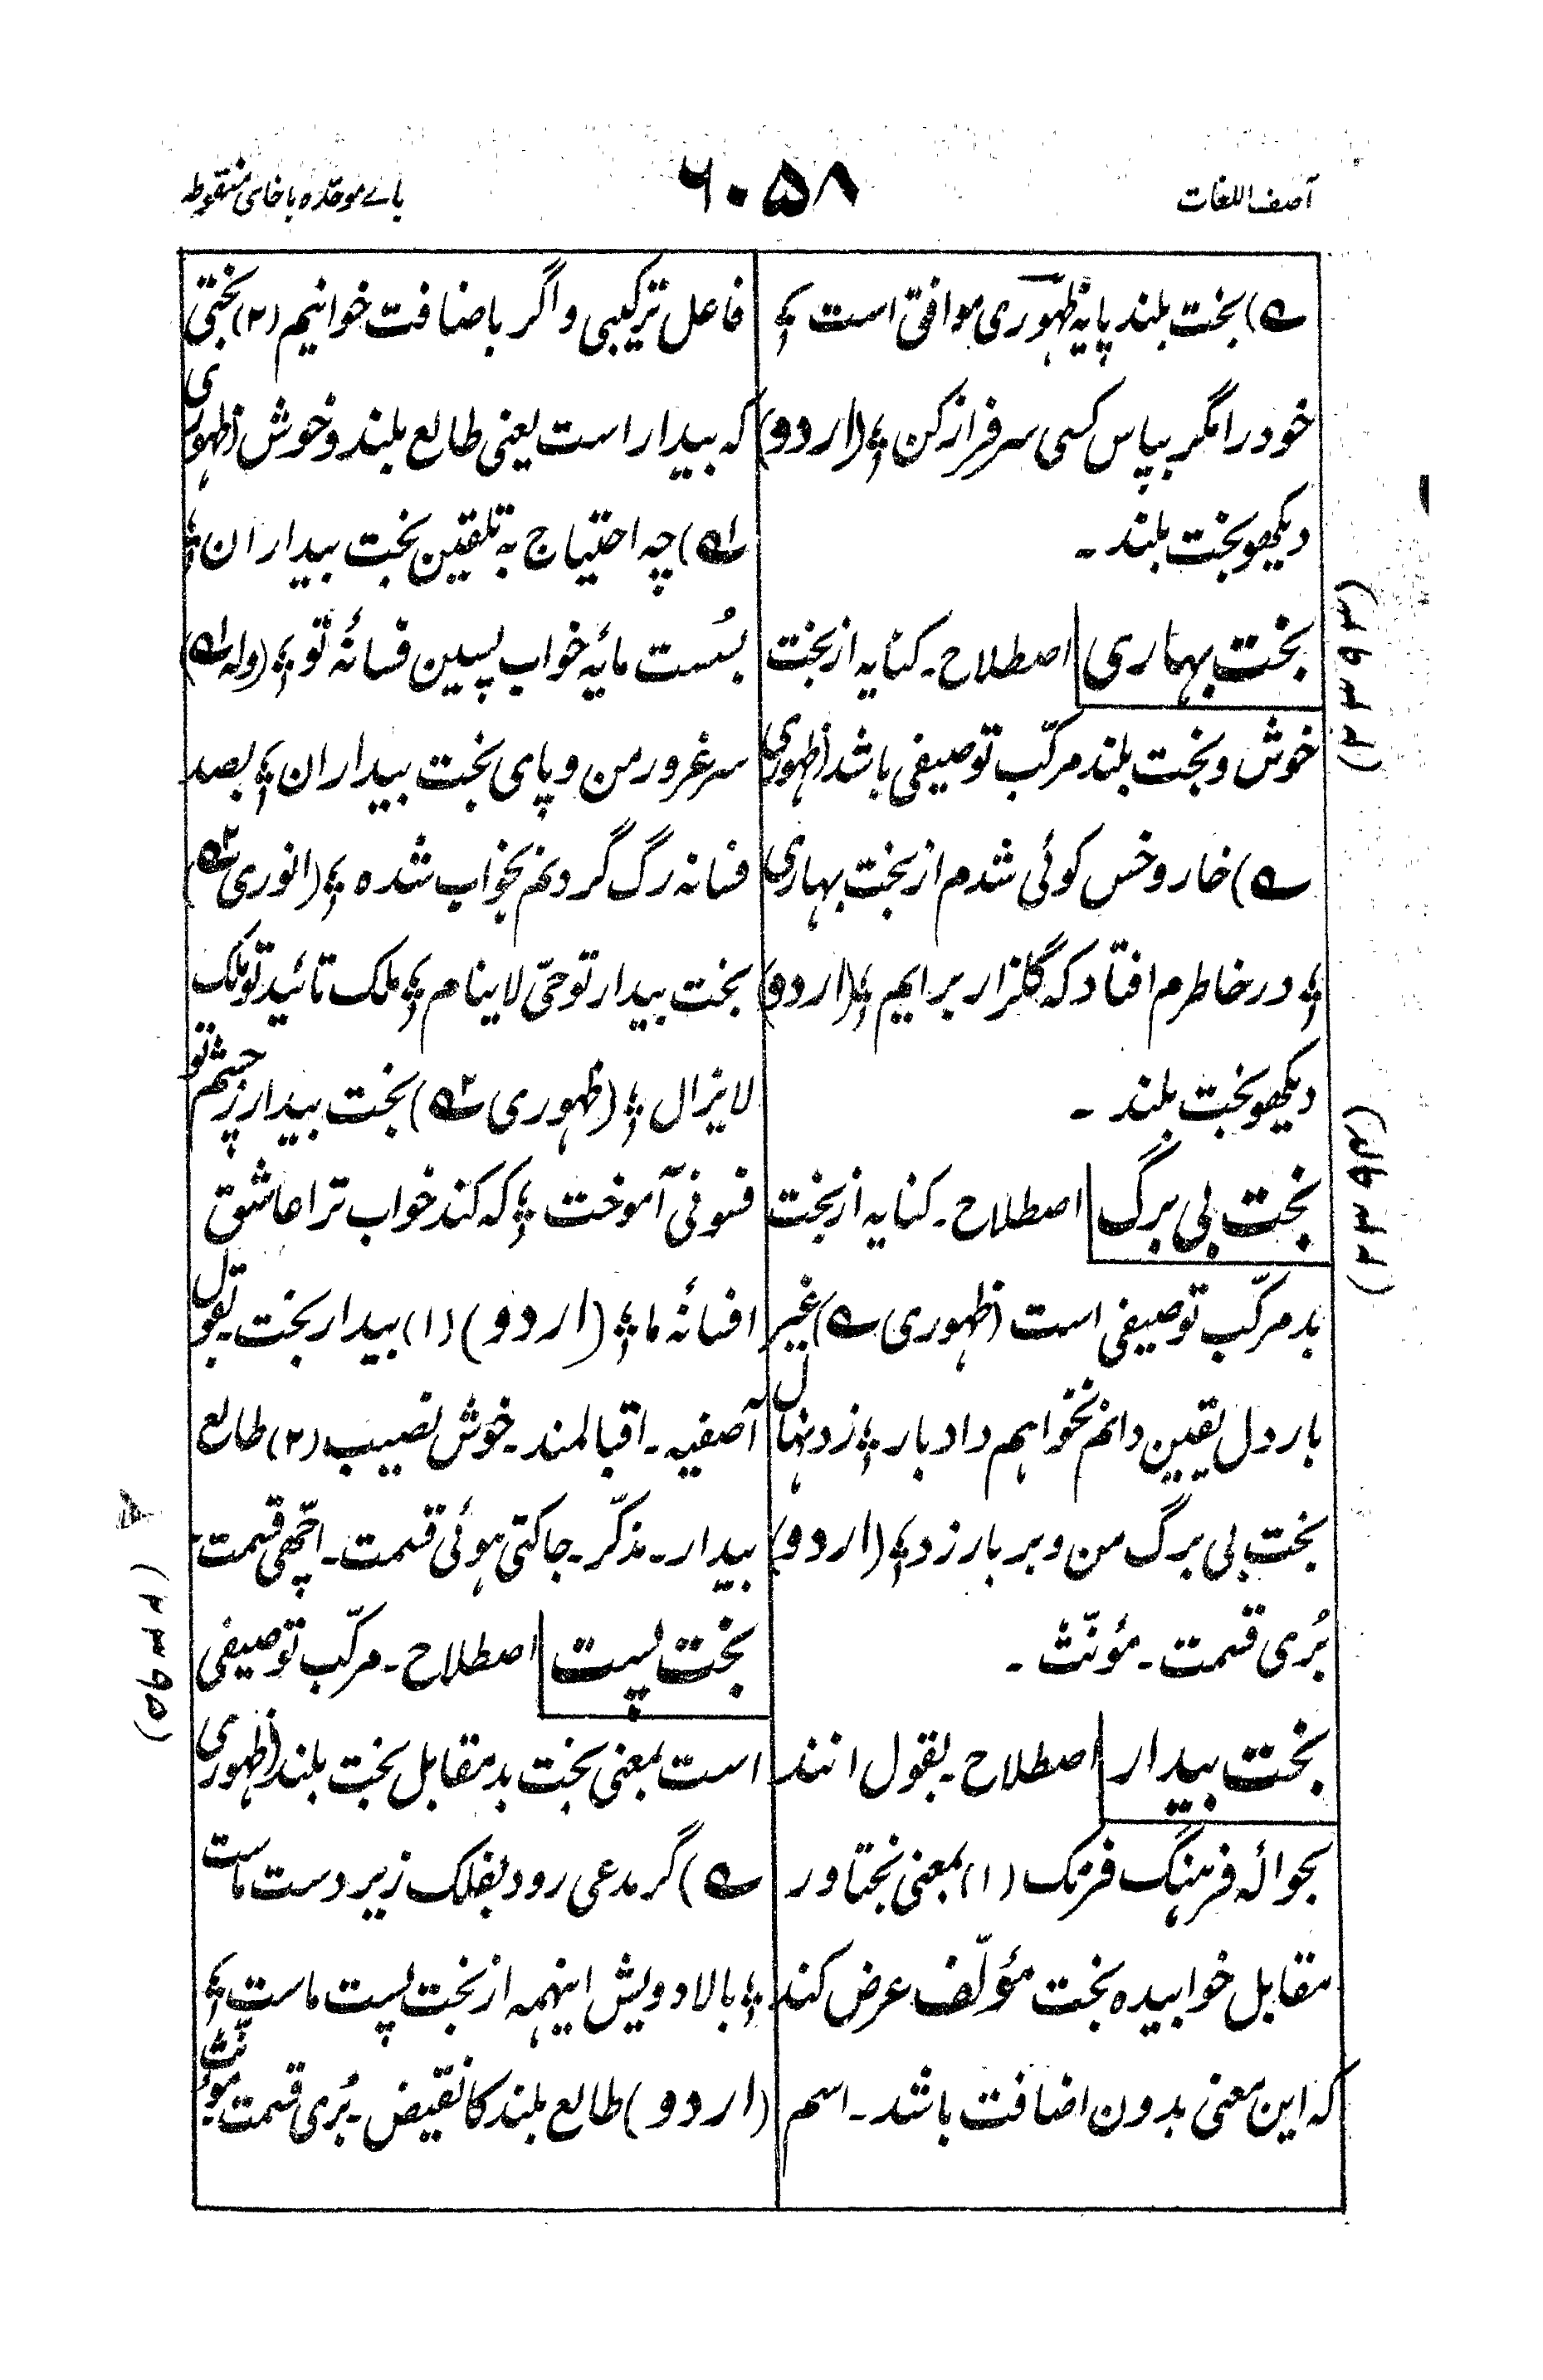 آصف اللغات
۶۰۵۸
بائے موحّدہ با خای منقوطہ
؎) بخت بلند پایہ ظہوری موافق است ؛
خود را مگر بپاس کسی سرفراز کن ؛ (اردو)
دیکھو بخت بلند ۔
بخت بہاری اصطلاح ۔ کنایہ از بخت
خوش و بخت بلند مرکّب توصیفی باشد (ظہوری
؎) خار و خس کوئی شدم از بخت بہاری
؛ در خاطرم افتاد کہ گلزار برایم ؛ (اردو)
دیکھو بخت بلند ۔
بخت بی برگ اصطلاح ۔ کنایہ از بخت
بد مرکّب توصیفی است (ظہوری ؎) غیر
بار دل یقین دانم نخواہم داد بار ؛ زد نہال
بخت بی برگ من و بر بار زد ؛ (اردو)
بُری قسمت ۔ مؤنّث ۔
بخت بیدار اصطلاح ۔ بقول انند
بحوالۂ فرہنگ فرنگ (۱) بمعنی بختاور
مقابل خوابیدہ بخت مؤلّف عرض کند
کہ این معنی بدون اضافت باشد ۔ اسم
فاعل ترکیبی و اگر باضافت خوانیم (۲) بختی
کہ بیدار است یعنی طالع بلند و خوش (ظہوری
؎۱) چہ احتیاج بہ تلقین بخت بیداران ؛
بسُست مایۂ خواب پسین فسانۂ تو ؛ (ولہ ؎۱)
سر غرور من و پای بخت بیداران ؛ بصد
فسانہ رگ گردنم بخواب شدہ ؛ (انوری ؎۲)
بخت بیدار تو حیّ لاینام ؛ ملک تائید تو ملک
لایزال ؛ (ظہوری ؎۲) بخت بیدار ز چشم تو
فسونی آموخت ؛ کہ کند خواب ترا عاشق
افسانۂ ما ؛ (اردو) (۱) بیدار بخت بقول
آصفیہ ۔ اقبالمند ۔ خوش نصیب (۲) طالع
بیدار ۔ مذکّر ۔ جاگتی ہوئی قسمت ۔ اچّھی قسمت
بخت پست اصطلاح ۔ مرکّب توصیفی
است بمعنی بخت بد مقابل بخت بلند (ظہوری
؎) گر مدعی رود بفلک زیر دست ماست
؛ بالا دویش اینہمہ از بخت پست ماست ؛
(اردو) طالع بلند کا نقیض ۔ بُری قسمت مؤنّث